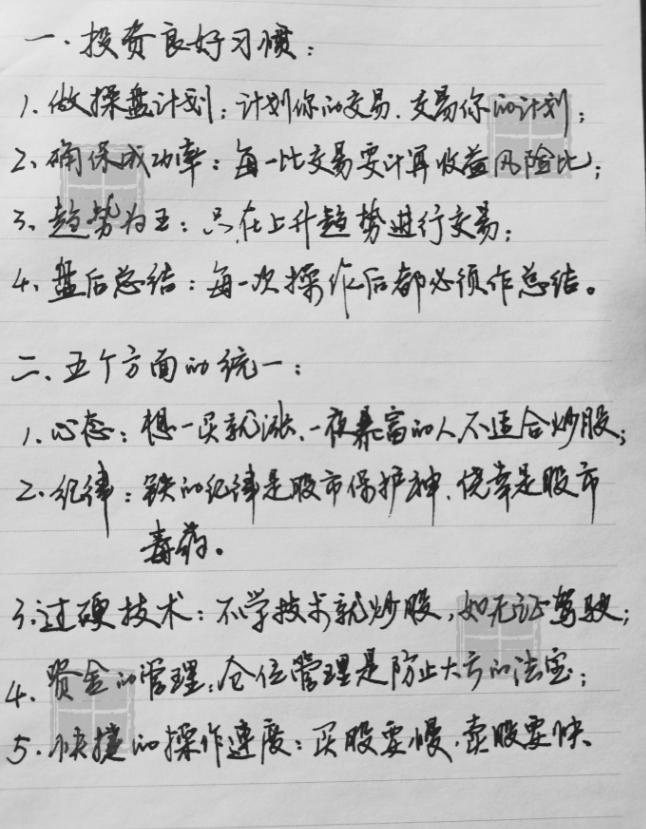 一.投资良好习惯：
1.做操盘计划：计划你的交易.交易你的计划；
2、确保成功率：每一比交易要计算收益风险比；
3、趋势为王：只在上升趋势进行交易；
4、盘后总结：每一次操作后都必须作总结。
二、五个方面的统一：
1.心态：想一买就涨.一夜暴富的人不适合炒股；
2.纪律：铁的纪律是股市保护神.侥幸是股市
毒药。
3.过硬技术：不学技术就炒股，如无证驾驶；
4.资金的管理：仓位管理是防止大亏的法宝；
5.快捷的操作速度：买股要慢.卖股要快.